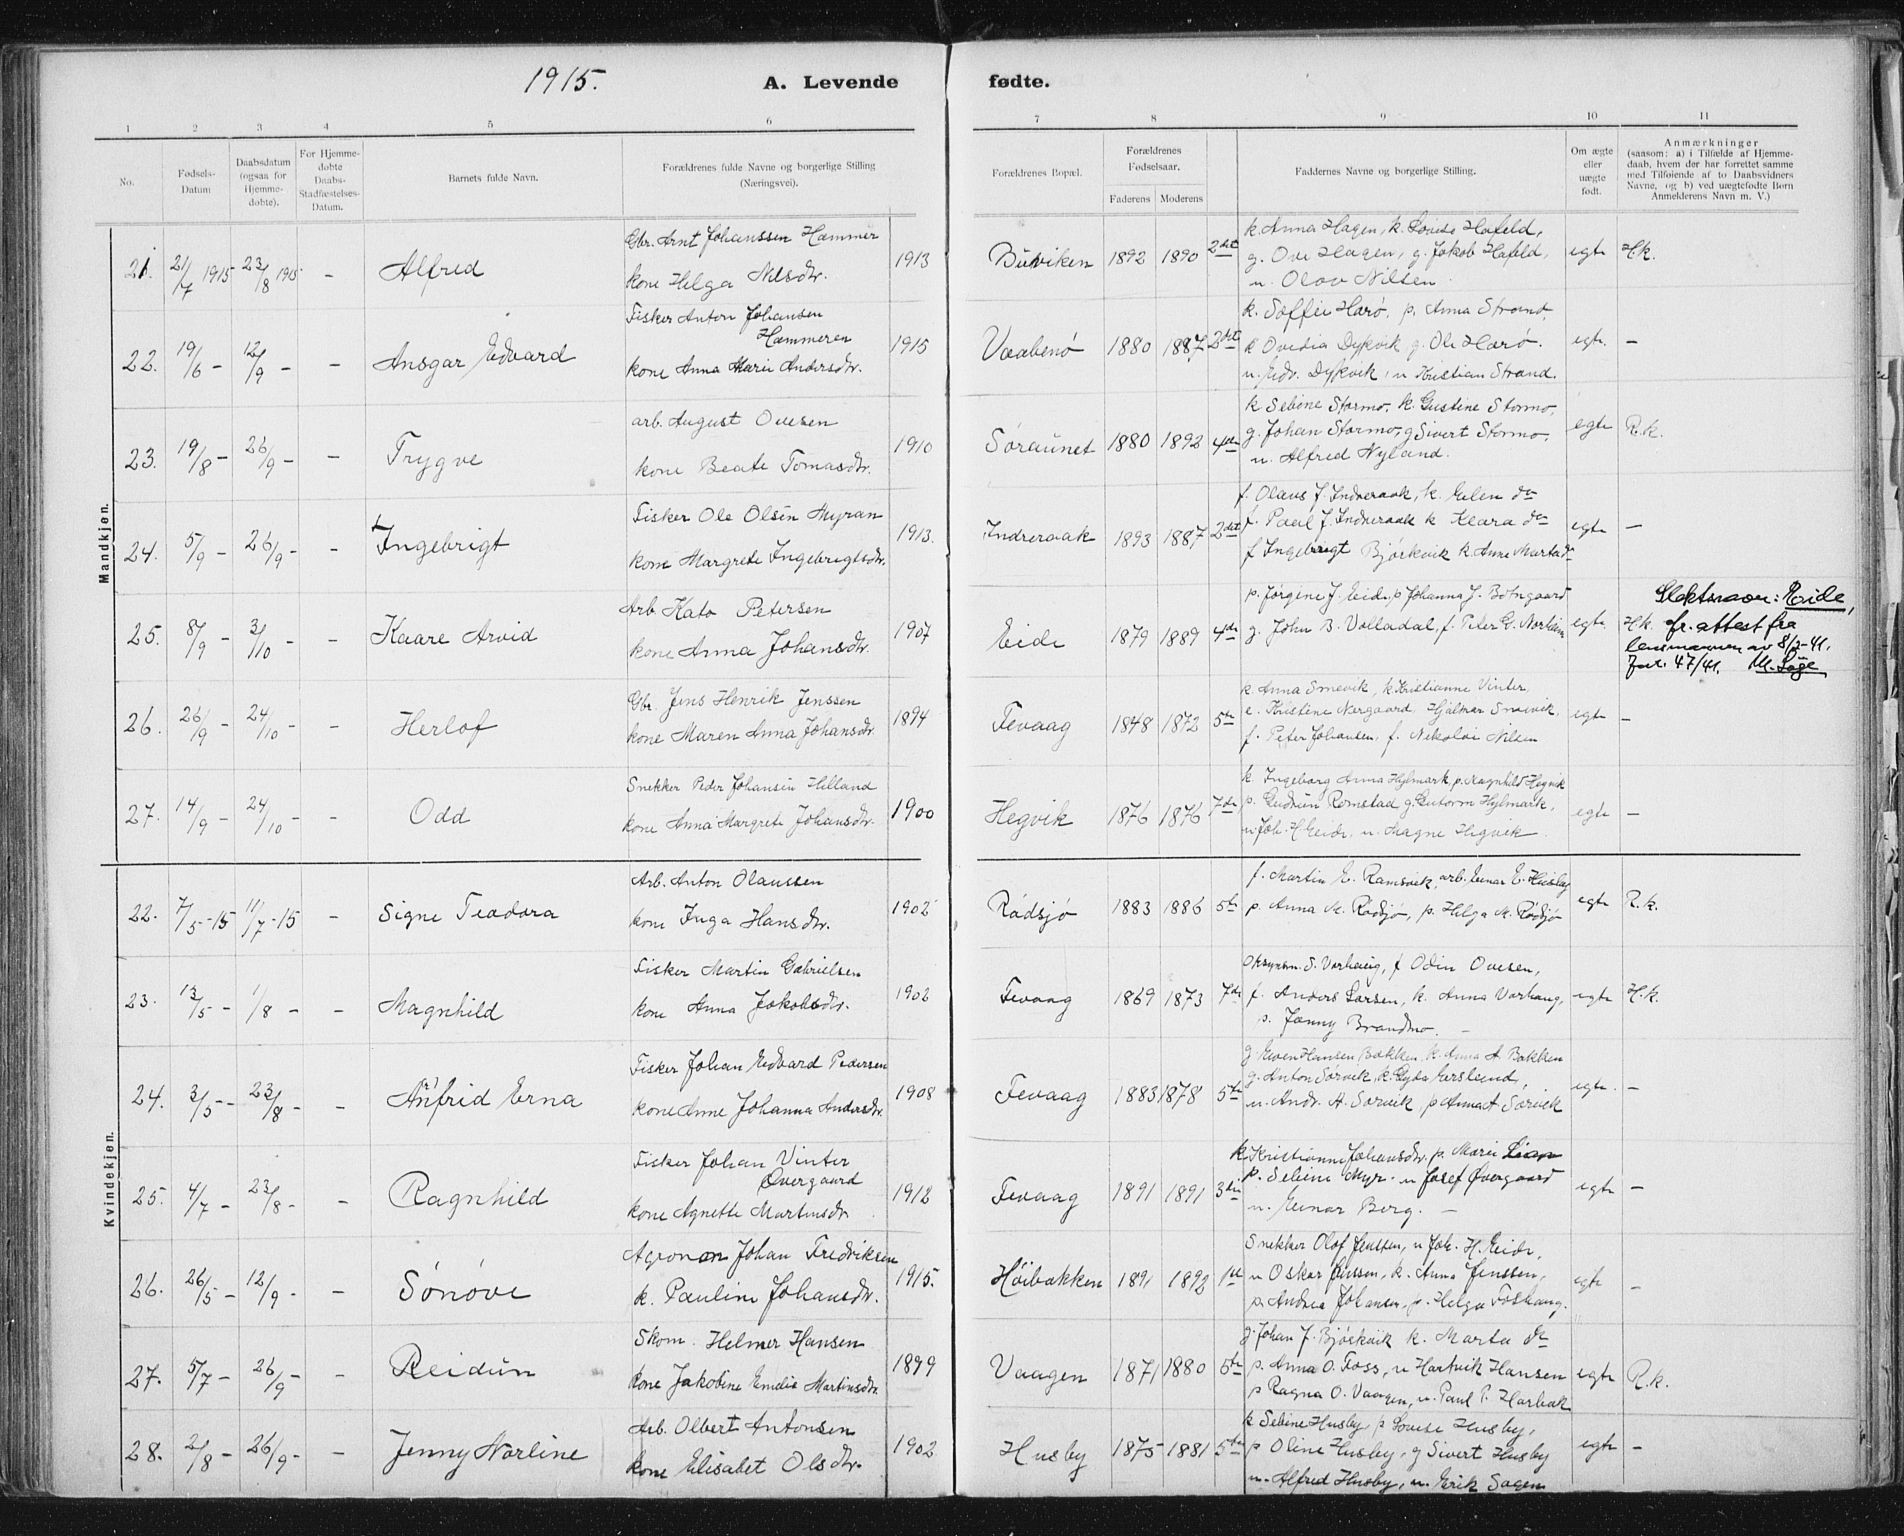 1915. A. Levende fødte.
1 2 3 4 5 6 7 8 9 10 11
No. Fødsels-Datum Daabsdatum (ogsaa for Hjemme-døbte). For Hjemme-døbte Daabs-Stadfæstelses-Datum. Barnets fulde Navn. Forældrenes fulde Navne og borgerlige Stilling (Næringsvei). Forældrenes Bopæl. Forældrenes Fødselsaar. Faderens Moderens Faddernes Navne og borgerlige Stilling. Om ægte eller uægte født. Anmærkninger (saasom: a) i Tilfælde af Hjemme-daab, hvem der har forrettet samme med Tilføiende af to Daabsvidners Navne, og b) ved uægtefødte Børn Anmelderens Navn m. V.)
Mandkjøn.
21. 21/7 1915 23/8 1915 - Alfred Gbr. Arnt Johanssen Hammer 1913 Buvviken 1892 1890 2det k. Anna Hagen, k. Lovise Hafeld, egte H.k.
kone Helga Nilsdtr. g. Ove Hagen, g. Jakob Hafeld,
u. Olav Nilsen
22. 19/6 - 12/9 - - Ansgar Edvard Fisker Anton Johansen Hammeren 1915 Vaabenø 1880 1887 2det k. Soffie Harø, p. Anna Strand, egte. -
kone Anna Marie Andersdtr. k Ovidia Dykvik g. Ole Harø.
u. Edv. Dykvik, u Kristian Strand.
23. 19/8 - 26/9 - - Trygve arb. August Ovesen 1910 Søraunet 1880 1892 4de k Sebine Stormo, k. Gustine Stormo, egte R.k.
kone Beate Tomasdtr. g. Johan Stormo, g Sivert Stormo,
u. Alfred Nyland.
24. 5/9 - 26/9 - - Ingebrigt Fisker Ole Olsen Myran 1913. Indreraak 1893 1887 2det f. Olaus J. Indreraak, k. Elen do egte -
kone Margrete Ingebrigtsdtr. f. Paul J. Indreraak k Klara do
f Ingebrigt Bjørkvik k. Anne Marta do
25. 8/9 - 3/10 - - Kaare Arvid Arb. Kato Petersen 1907 Eide 1879 1889 4de p. Jørgine J. Eide, p Johanna J. Botngaard egte. H.k. Slektsnavn: Eide,
kone Anna Johansdtr. g. John B. Valladal, f. Peter G. Norheim fr. attest fra
lensmannen av 8/2-41.
Jnr. 47/41. M. Søge
26. 26/9 - 24/10 - - Herlof Gbr. Jens Henrik Jenssen 1894 Fevaag 1848 1872 5te k. Anna Smevik, k Kristianne Vinter, egte -
kone Maren Anna Johansdtr. e. Kristine Nergaard Hjalmar Smevik,
f. Peter Johansen, f. Nikolai Nilsen
27. 14/9 - 24/10 - - Odd Snekker Peder Johansen Hilland 1900 Hegvik 1876 1876 7de k Ingeborg Anna Hylmark, p. Magnhild Hegvik egte -
kone Anna Margrete Johansdtr. p. Gudrun Romstad g. Gutorm Hylmark,
u. Joh. H. Eide, u. Magne Hegvik.
Kvindekjøn.
22. 7/5 -15 11/7 -15 - Signe Teodora Arb. Anton Olaussen 1902 Rødsjø 1883 1886 5te f. Martin E. Ramsvik, arb. Einar E. Husby egte R.k.
kone Inga Hansdtr. p. Anna M. Rødsjø, p. Helga M. Rødsjø
23. 13/5 - 1/8 - - Magnhild Fisker Martin Gabrielsen 1902 Fevaag 1869 1873 7de S. Varhaug, f Odin Ovesen, egte H.k.
kone Anna Jakobsdtr. f. Anders Larsen, k. Anna Varhaug,
p. Jenny Brandmo. -
24. 3/5 - 23/8 - - Anfrid Erna Fisker Johan Edvard Pedersen 1908 Fevaag 1883 1878 5te g. Even Hansen Bakken, k. Anna A. Bakken egte. -
kone Anne Johanna Andersdtr. g. Anton Sørvik, k. Gyda Erslund,
u. Andr. A. Sørvik p Anna A Sørvik
25. 4/7 - 23/8 - - Ragnhild Fisker Johan Vinter Øvergaard 1912 Fevaag 1891 1891 3die k. Kristianne Johansdtr. p. Marie Lian egte -
kone Agnette Martinsdtr. p. Seline Myr. u Josef Øvergaard
u. Einar Berg. -
26. 26/5 - 12/9 - - Sønøve Agronom Johan Fredriksen 1915. Høibakken 1891 1892 1ste Snekker Olaf Jenssen, u Joh. H. Eide, egte -
k. Pauline Johansdtr. u Oskar Jenssen, k. Anna Jenssen,
p. Andrea Johansen, p. Helga Foshaug.
27. 5/7 - 26/9 - - Reidun Skom. Helmer Hansen 1899 Vaagen 1871 1880 5te g. Johan J. Bjørkvik k. Marta do egte R.k.
kone Jakobine Emelie Martinsdtr. p. Anna O. Foss, u Hartvik Hansen
p Ragna O. Vaagen, u. Paul P. Harbak
28. 2/8 - 26/9 - - Jenny Norline Arb. Olbert Antonsen 1902 Husby 1875 1881 5te k Sebine Husby, p Lovise Husby, egte -
kone Elisabet Olsdtr. p Oline Husby, g Sivert Husby
u. Alfred Husby, u. Erik Sagen